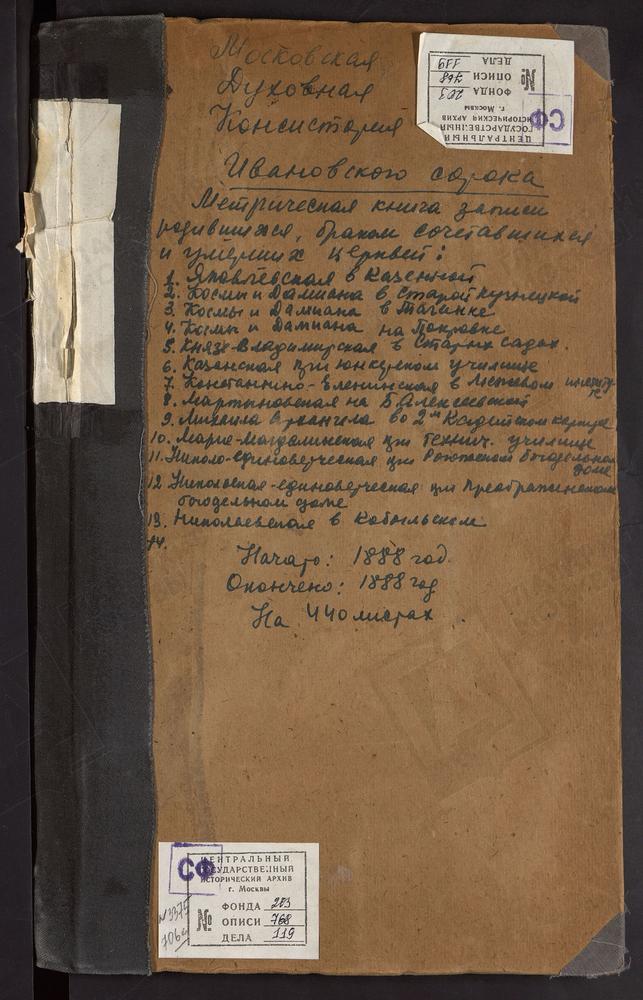 Московская
Духовная
Консистория
Ивановского сорока
Метрическая книга записи
родившихся, браком сочетавшихся
и умерших церквей:
1. Яковлевская в Казенной
2. Космы и Дамиана в Старой Кузнецкой
3. Космы и Дамиана в Таганке
4. Космы и Дамиана на Покровке
5. Князе-Владимирская в Старых садах.
6. Казанская при юнкерском училище
7. Константино-Еленинская в Межевом институте
8. Мартыновская на Б. Алексеевской
9. Михаила Архангела во 2м Кадетском корпусе
10. Марие-Магдалинская при Технич. училище
11. Николо-единоверческая при Рогожском богадельном
доме
12. Никольская-единоверческая при Преображенском
богодельном доме
13. Николаевская в Кобыльском
14.
Начато: 1888 год.
Окончено: 1888 год
На 440 листах
ЦЕНТРАЛЬНЫЙ
ГОСУДАРСТВЕННЫЙ
ИСТОРИЧЕСКИЙ АРХИВ
г. Москвы
СФ
ФОНДА 203
№ ОПИСИ 768
ДЕЛА 119
СФ
ЦЕНТРАЛЬНЫЙ
ГОСУДАРСТВЕННЫЙ
ИСТОРИЧЕСКИЙ АРХИВ
г. Москвы
ФОНДА 203
№ ОПИСИ 768
ДЕЛА 119